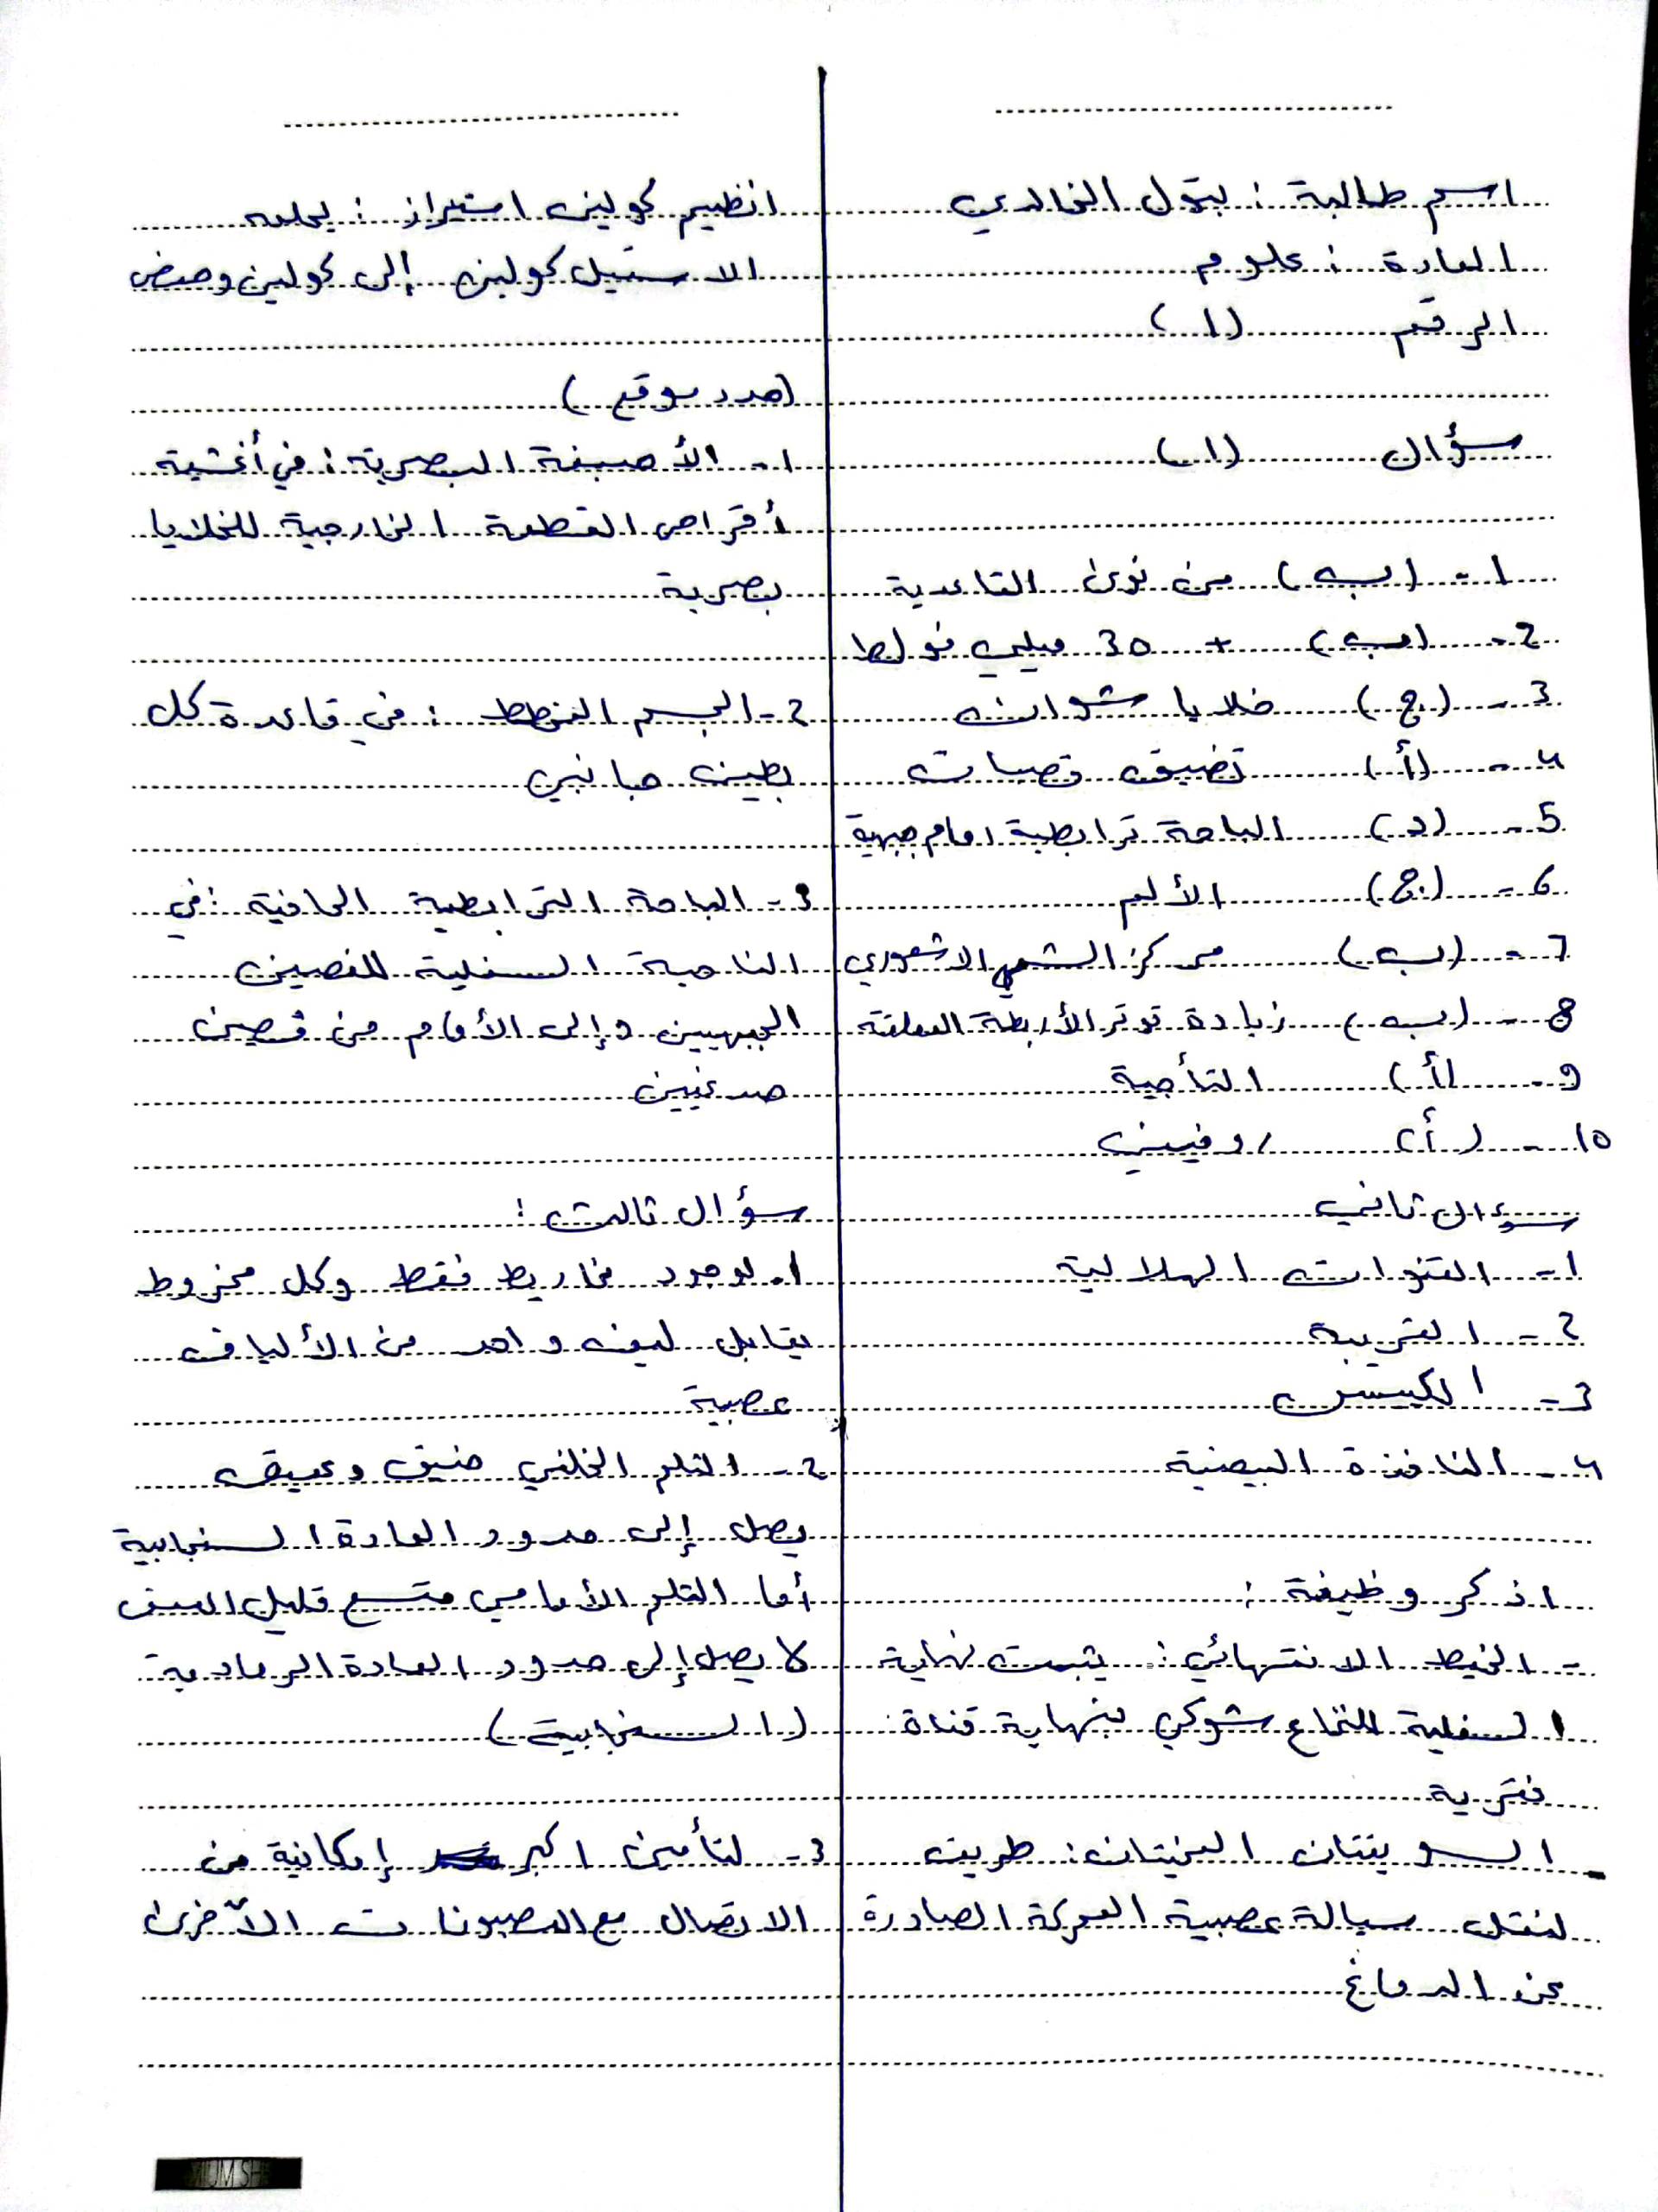 اسم طالبة : بتول الخالدي
المادة : علوم
الرقم (1)
سؤال (1)
1- (ب) من نوى القاعدية
2- (ب) + 30 ميلي فولط
3- (ج) خلايا شوانت
4- (أ) تضيق قصبات
5- (د) الباحة ترابطية امام جبهية
6- (ج) الألم
7- (ب) مركز الشمي الاشعوري
8- (ب) زيادة توتر الأربطة المعلقة
9- (أ) التأجية
10- (أ)
سوءال ثاني
1- القنوات الهلالية
2- القريبة
3- الكييس
4- النافذة البيضية
اذكر وظيفة :
- الخيط الانتهائي : يثبت نهاية
السفلية للنخاع شوكي بنهاية قناة
فقرية
- السويقتان المخيتان : طريق
لنقل سيالة عصبية المحركة الصادرة
عن الدماغ
انظيم كولين استيراز : يحلمه
الاستيل كولين إلى كولين وحمض
(حدد موقع)
1- الأصبغة البصرية : في أغشية
أقراص القطعة الخارجية للخلايا
بصرية
2- الجسم المخطط : في قاعدة كل
بطين جانبي
3- الباحة الترابطية الحافية : في
الناحية السفلية للفصين
الجبهيين وإلى الأمام من فصين
صدغيين
سؤال ثالث :
1. لوجود مخاريط فقط وكل مخروط
يقابل ليف واحد من الألياف
عصبية
2- التلم الخلفي ضيق وعميق
يصل إلى حدود المادة السنجابية
أما التلم الأمامي متسع قليل العمق
لا يصل إلى حدود المادة الرمادية
(السنجابية)
3- لتأمين اكبر إمكانية من
الاتصال مع العصبونات الأخرى